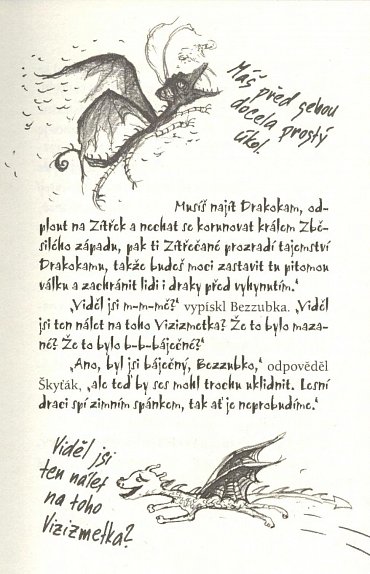 Máš před sebou
docela prostý
úkol.
Musíš najít Drakokam, od-
plout na Zítřek a nechat se korunovat králem Zbě-
silého západu, pak ti Zítřečané prozradí tajemství
Drakokamu, takže budeš moci zastavit tu pitomou
válku a zachránit lidi i draky před vyhynutím.“
„Viděl jsi m-m-mě?“ vypískl Bezzubka. „Viděl
jsi ten nálet na toho Vizizmetka? Že to bylo maza-
né? Že to bylo b-b-báječné?“
„Ano, byl jsi báječný, Bezzubko,“ odpověděl
Škyťák, „ale teď by ses mohl trochu uklidnit. Lesní
draci spí zimním spánkem, tak ať je neprobudíme.“
Viděl jsi
ten nálet
na toho
Vizizmetka?